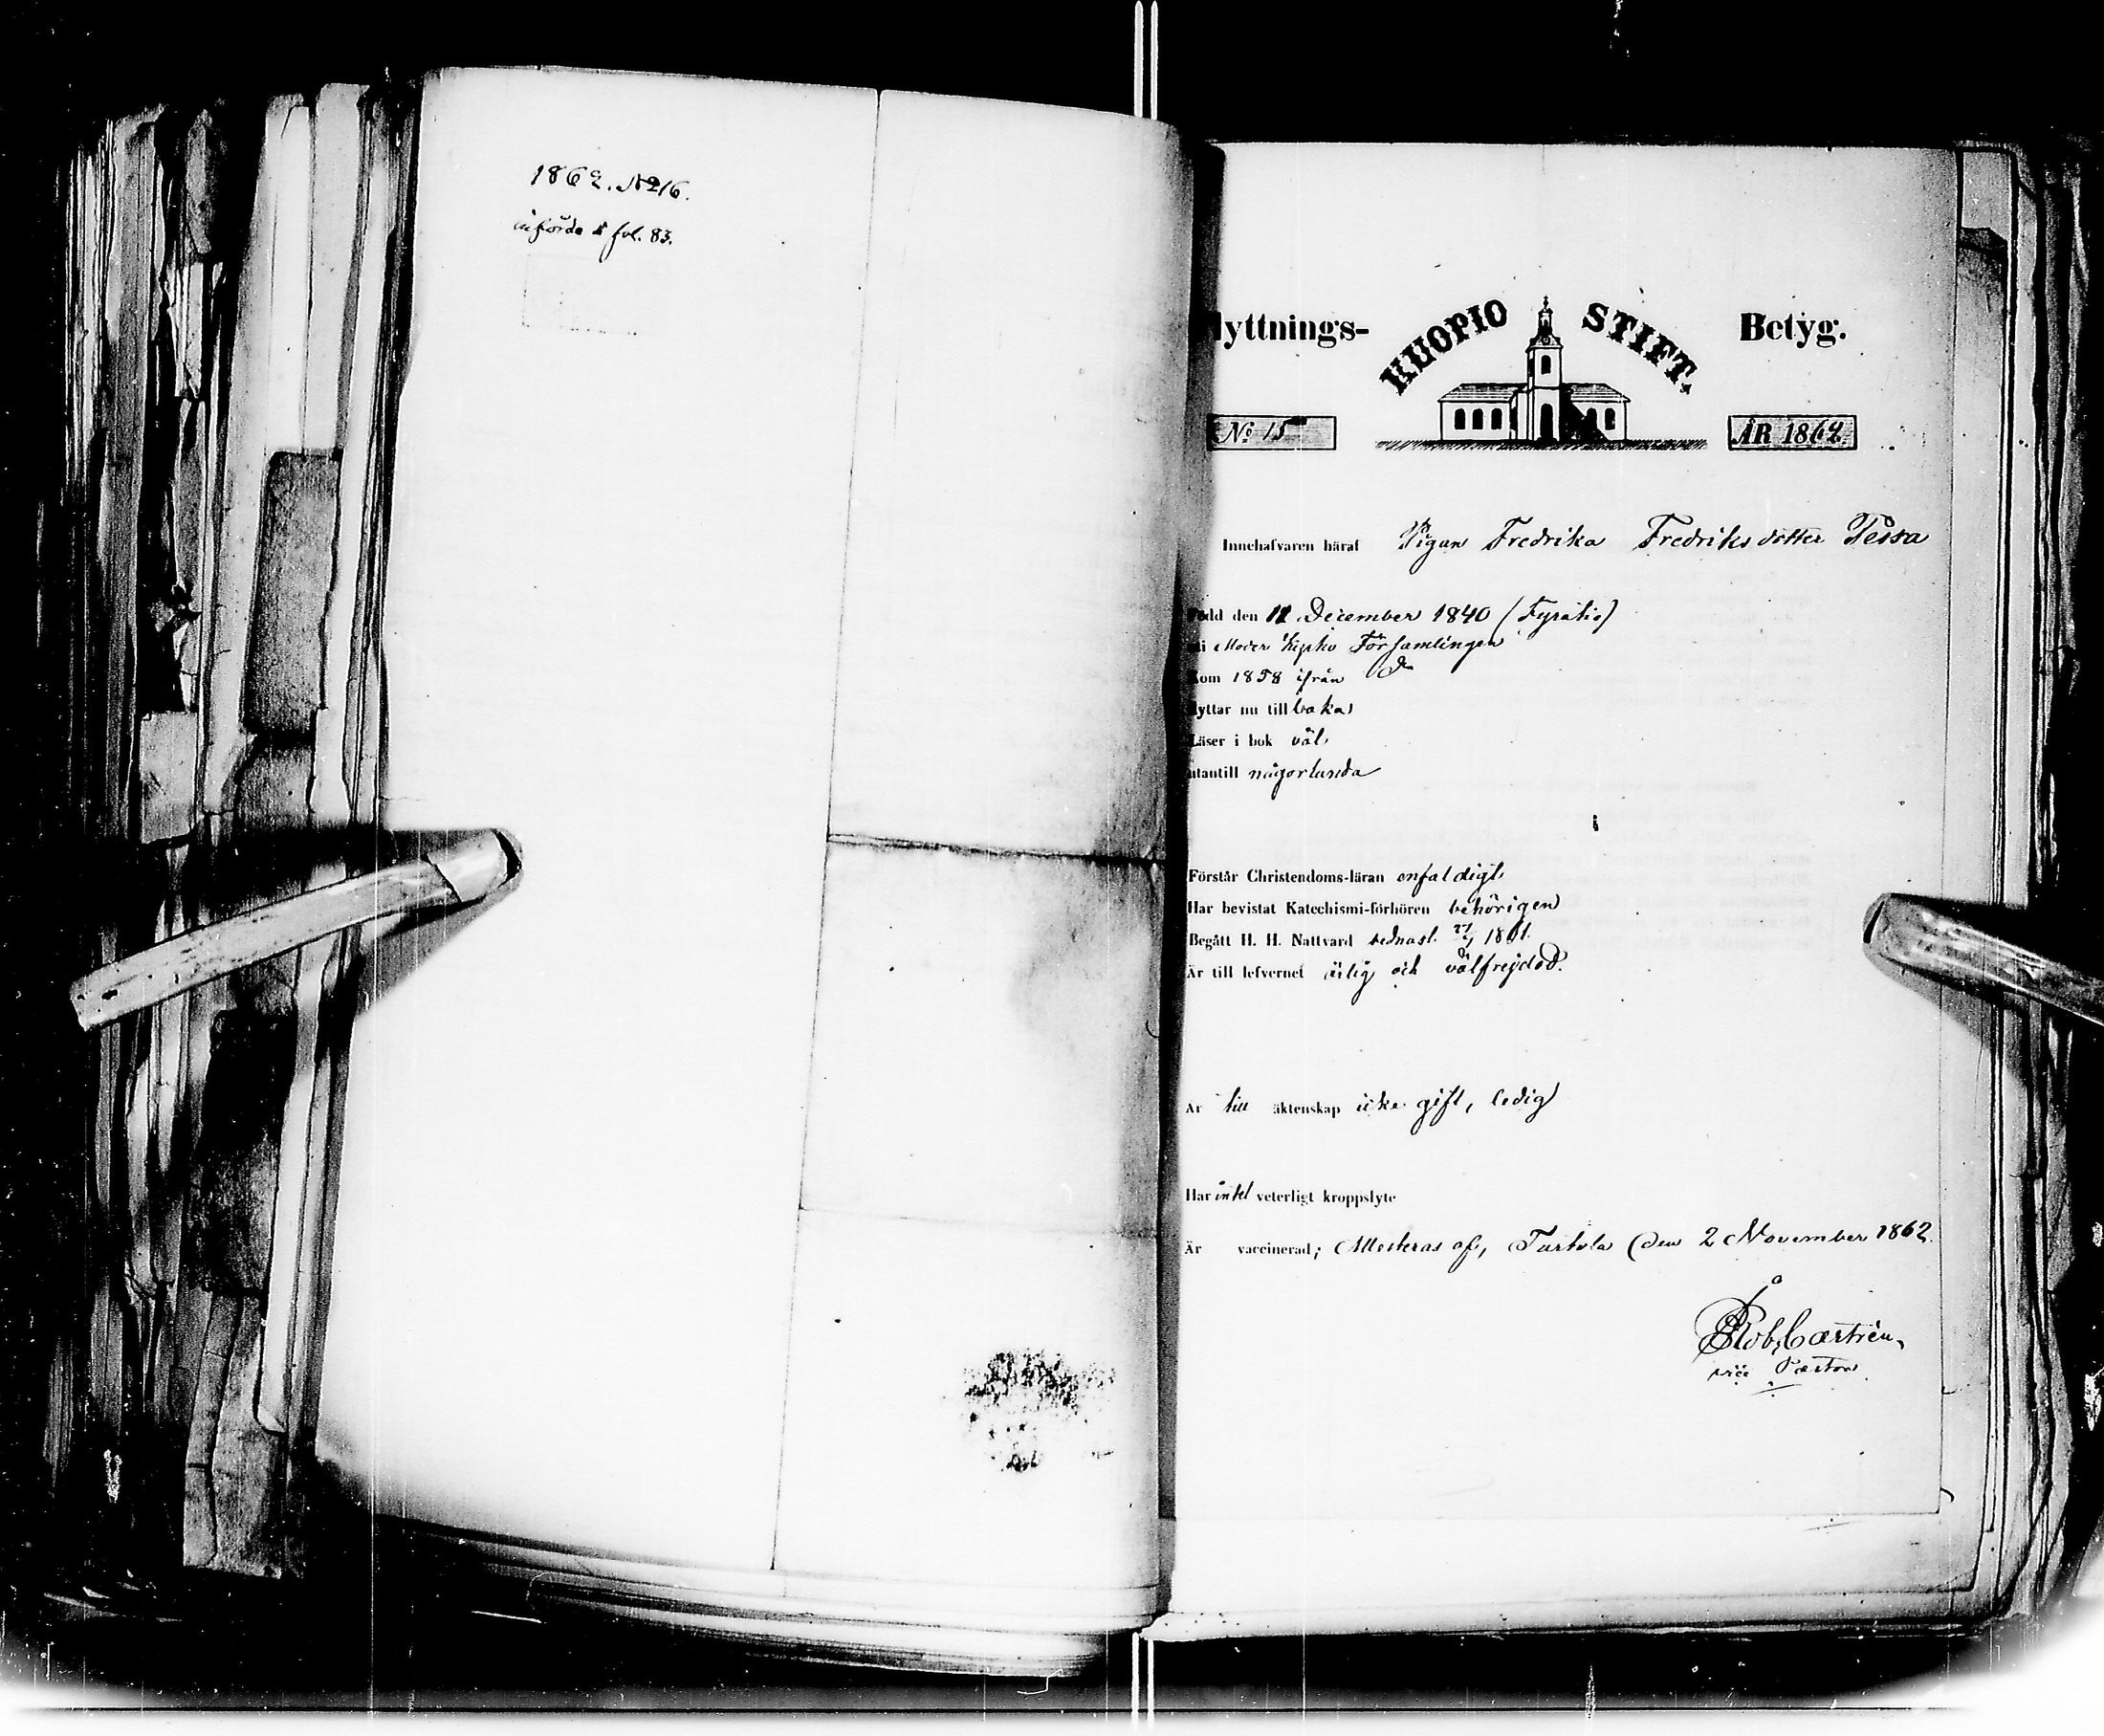 1862. No 16.
införda fol. 83.
lyttnings- KUOPIO STIFT. Betyg.
No 15 ÅR 1862.
Innehafvaren häraf Pigan Fredrika Fredriksdotter Pessa
Född den 11 December 1840 (Fyratio)
i Moder Kyrko Församlingen
Kom 1858 ifrån Do
lyttar nu till baka
Läser i bok väl
utantill någorlunda
Förstår Christendoms-läran enfaldigt
Har bevistat Katechismi-förhören behörigen
Begått H. H. Nattvard sednast 1861.
Är till lefvernet ärlig och välfrejdad.
Är till äktenskap icke gift, ledig
Har intet veterligt kroppslyte
Är vaccinerad; Attesteras af, Turtola den 2 November 1862.
Rob. Castrén,
vice Pastor.